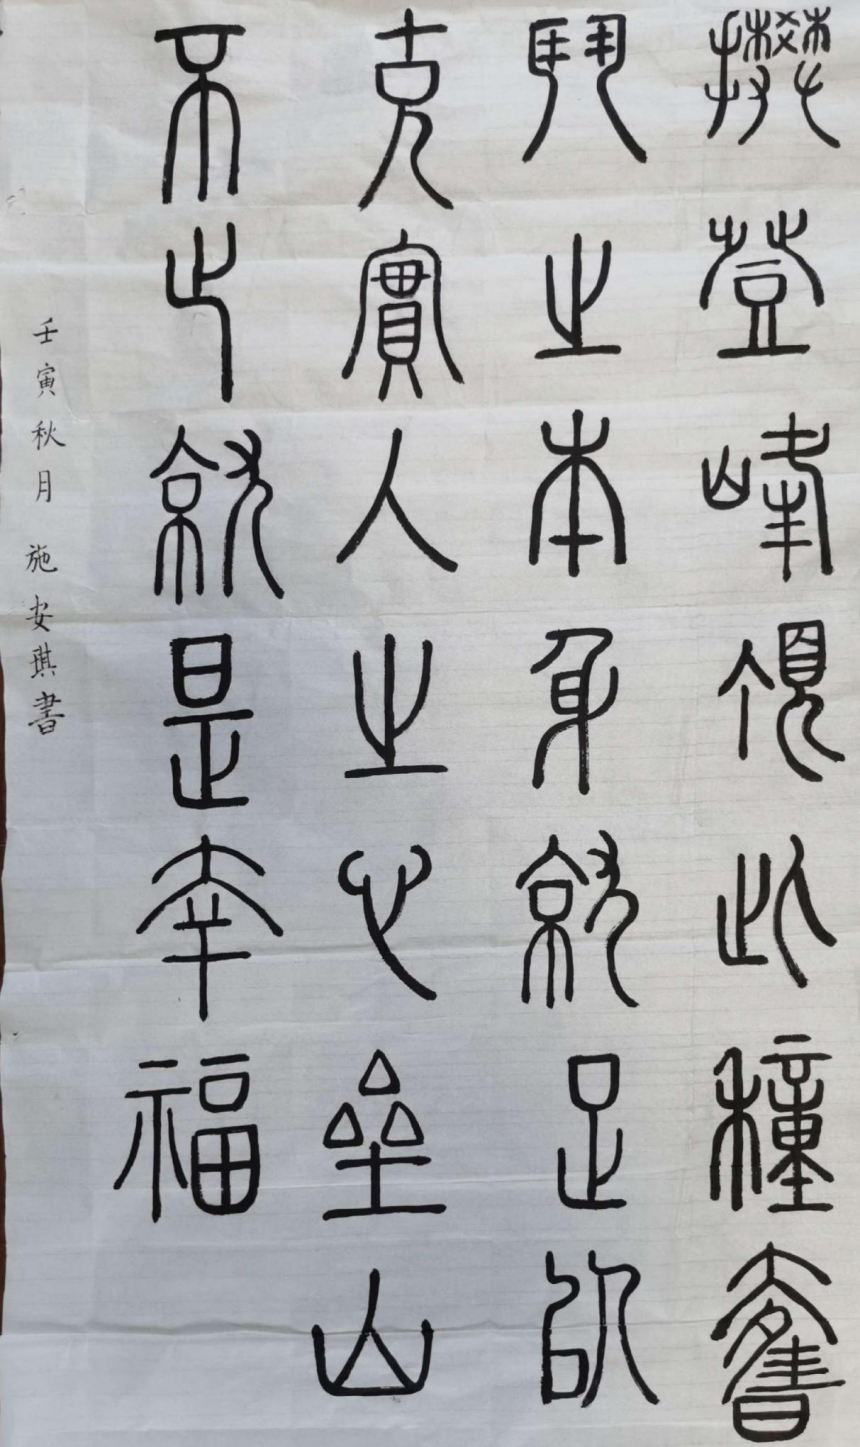 攀登峰頂此種奮
鬥之本身就足以
克實人之心垒山
不止就是幸福
壬寅秋月 施安琪書